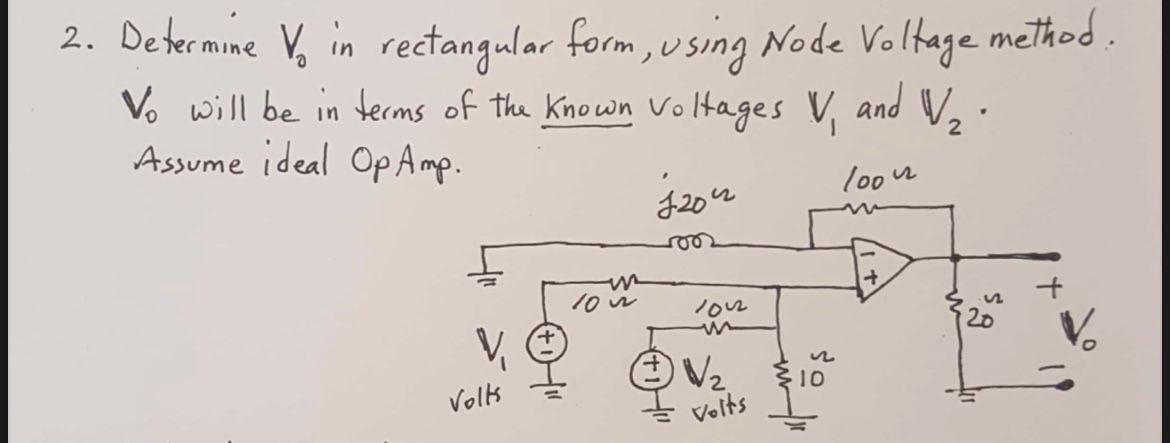 2. Determine V₀ in rectangular form, using Node Voltage method.
V₀ will be in terms of the Known voltages V₁ and V₂.
Assume ideal OpAmp.
j20Ω
100Ω
−
+
10Ω
10Ω
V₁
+
−
Volts
+
−
V₂
Volts
10Ω
20Ω
+
V₀
−